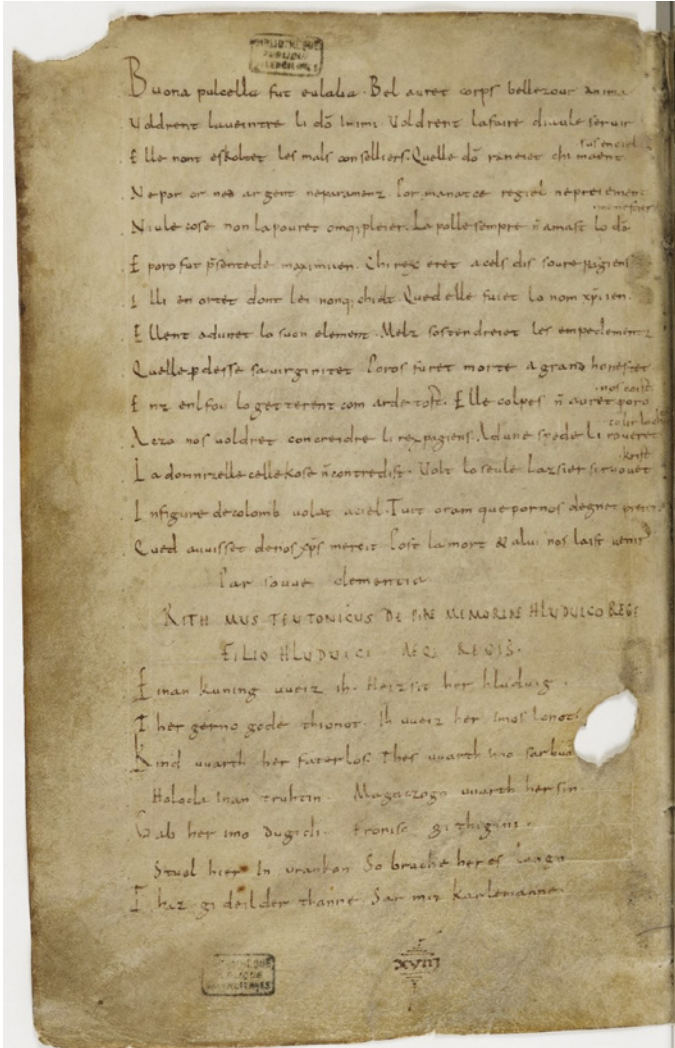 BIBLIOTHEQUE
PUBLIQUE
Buona pulcella fut eulalia. Bel auret corps bellezour anima
Voldrent la veintre li dō inimi. Voldrent la faire diaule seruir
Elle nont eskoltet les mals conselliers. Quelle dō raneiet chi maent
sus en ciel
Ne por or ned argent ne paramenz. Por manatce regiel ne preiement
Niule cose non la pouret omq; pleier. La polle sempre ñ amast lo dō
menestier
E poro fut p̄sentede maximiien. Chi rex eret a cels dis soure pagiens
Illi en ortet dont lei nonq; chielt. Qued elle fuiet lo nom xp̄iien.
Ellent adunet lo suon element. Melz sostendreiet les empedementz
Quelle ꝑdesse sa uirginitet. Poros furet morte a grand honestet
Enz enl fou lo getterent com arde tost. Elle colpes ñ auret poro
nos coist
Aczo nos voldret concreidre li rex pagiens. Ad une spede li roveret
tolir lo chief
La domnizelle celle kose ñ contredist. Volt lo seule lazsier si ruouet
krist
In figure de colomb volat a ciel. Tuit oram que por nos degnet preier
Qued auuisset de nos xp̄s mercit. Post la mort & a lui nos laist venir
Par souue clementia
RITHMUS TEUTONICUS DE PIAE MEMORIAE HLUDUICO REGE
FILIO HLUDUICI AEQ; REGIS.
Einan kuning uueiz ih. Heizsit her hluduig.
Ther gerno gode thionot. Ih uueiz her imos lonot.
Kind uuarth her faterlos. Thes uuarth imo sar buoz
Holoda inan truhtin. Magaczogo uuarth her sin.
Gab her imo dugidi. Fronisc githigini.
Stuol hier in urankon. So bruche her es lango
Thaz gideilder thanne. Sar mit karlemanne.
XVIII